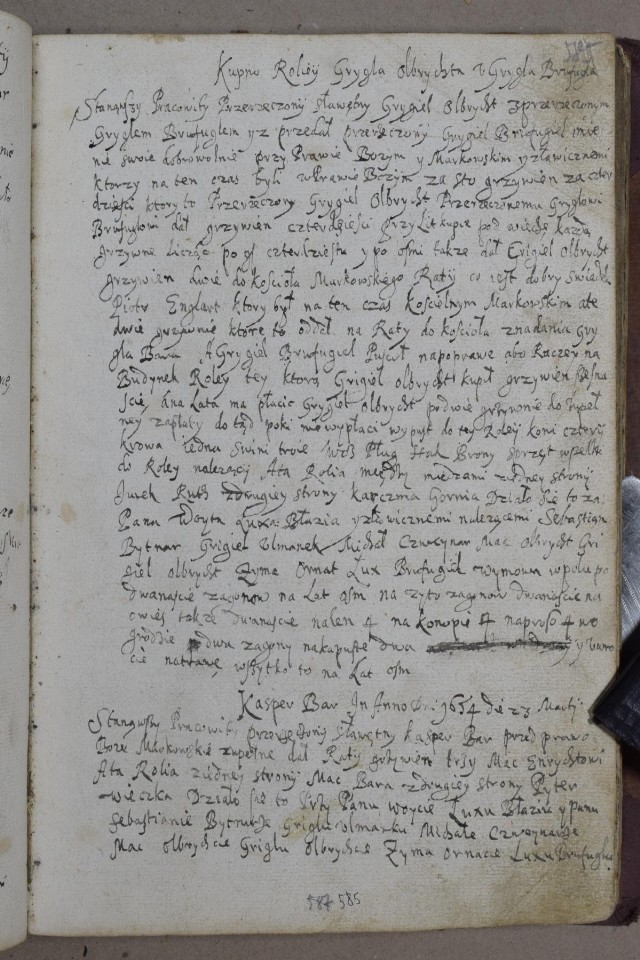 Kupno Roliij Grygla Olbrychta V Grygla Brufugla
Stanąwszy Pracowity Przerzeczony sławętny Grygiel Olbrycht zprzerzeconym
Gryglem Brufuglem yz przedał przerzeczony Grygiel Brufugiel
nie swoie dobrowolnie przy Prawie Bozym y Markowskim yzławicznemi
ktorzy na ten czas byli wPrawie Bożym za sto grzywien zaczter
dzięsci ktory to Przerzeczony Grygiel Olbrycht Przerzeczonemu Gryglowi
Brufuglowi dał grzywien czterdzięsci przy Litkupie pod wiechę kazdą
grzywnę licząc po gł czterdziestu y po osmi takze dał Grigiel Olbrycht
grzywien dwie do kosciola Markowskiego Ratij co iest dobry swiadek
Piotr Englart ktory był na ten czas koscielnym Markowskim ate
dwie grzywnie ktore to oddał na Raty do kosciola znadania Gry
gla Bara A Grygiel Brufugiel Puscił napoprawę abo Raczey na
Budynek Roley tey ktorą Grigiel olbrycht kupił grzywien
scie Ana Lata ma płacic Grygiel Olbrycht podwie grzywnie do
ney zapłaty do tąd poki nie wypłaci wypust do tey Roleij koni cztery
krowa iedna swini troie Woz Plug Hak Brony sprzęt wszelki
do Roley nalezący Ata Rolia między miedzami ziedney strony
Jurek Rusz zdrugiey strony karczma Gornia Działo się to za
Pana Woyta Luxa Błazia yzławicznemi nalezącemi Sebastian
Bytnar Grigiel Vlmanek Michał Czuxynar Mac Olbrycht Gri
giel olbrycht Zyma Ornat Lux Brufugiel wymowa wpolu po
dwanascie zagonow na Lat osm na zyto zagonow dwanascie na
owies także dwanascie nalen 4 na konopie 4 naproso 4 wo
grodzie dwa zagony nakapustę dwa y
cie natrawę wszytko to na Lat osm
Kasper Bar In Anno Dni 1654 die 23 Martij
Stanąwszy Pracowity przerzeczony sławętny kasper Bar przed prawo
Boze Markowskie zupełne dał Raty grzywien trzy Mac Enrychtowi
Ata Rolia ziedney strony Mac Bara zdrugiey strony Pyter
wieczka Działo się to Przy Panu woycie Luxu Błaziu y panu
Sebastianie Bytnarze Griglu Vlmanku Michale Czuxynarze
Mac olbrychcie Griglu Olbrychcie Zyma ornacie Luxu Brufuglu
584 585